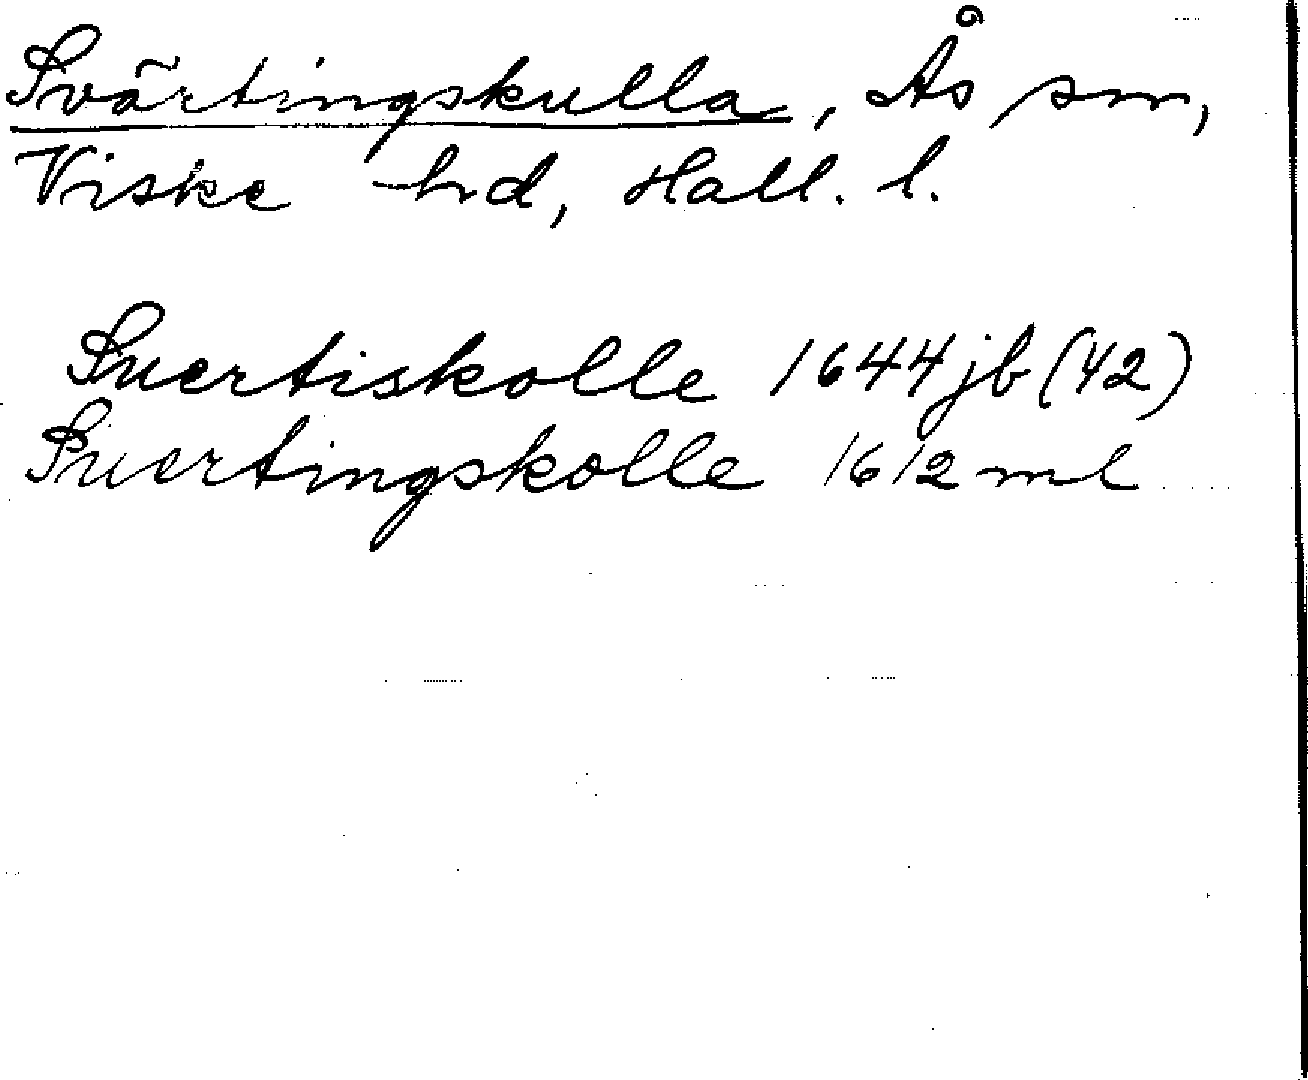 Svärtingskulla, Ås sn,
Viske hd, Hall. l.
Suertiskolle 1644 jb (42)
Suertingskolle 1612 ml